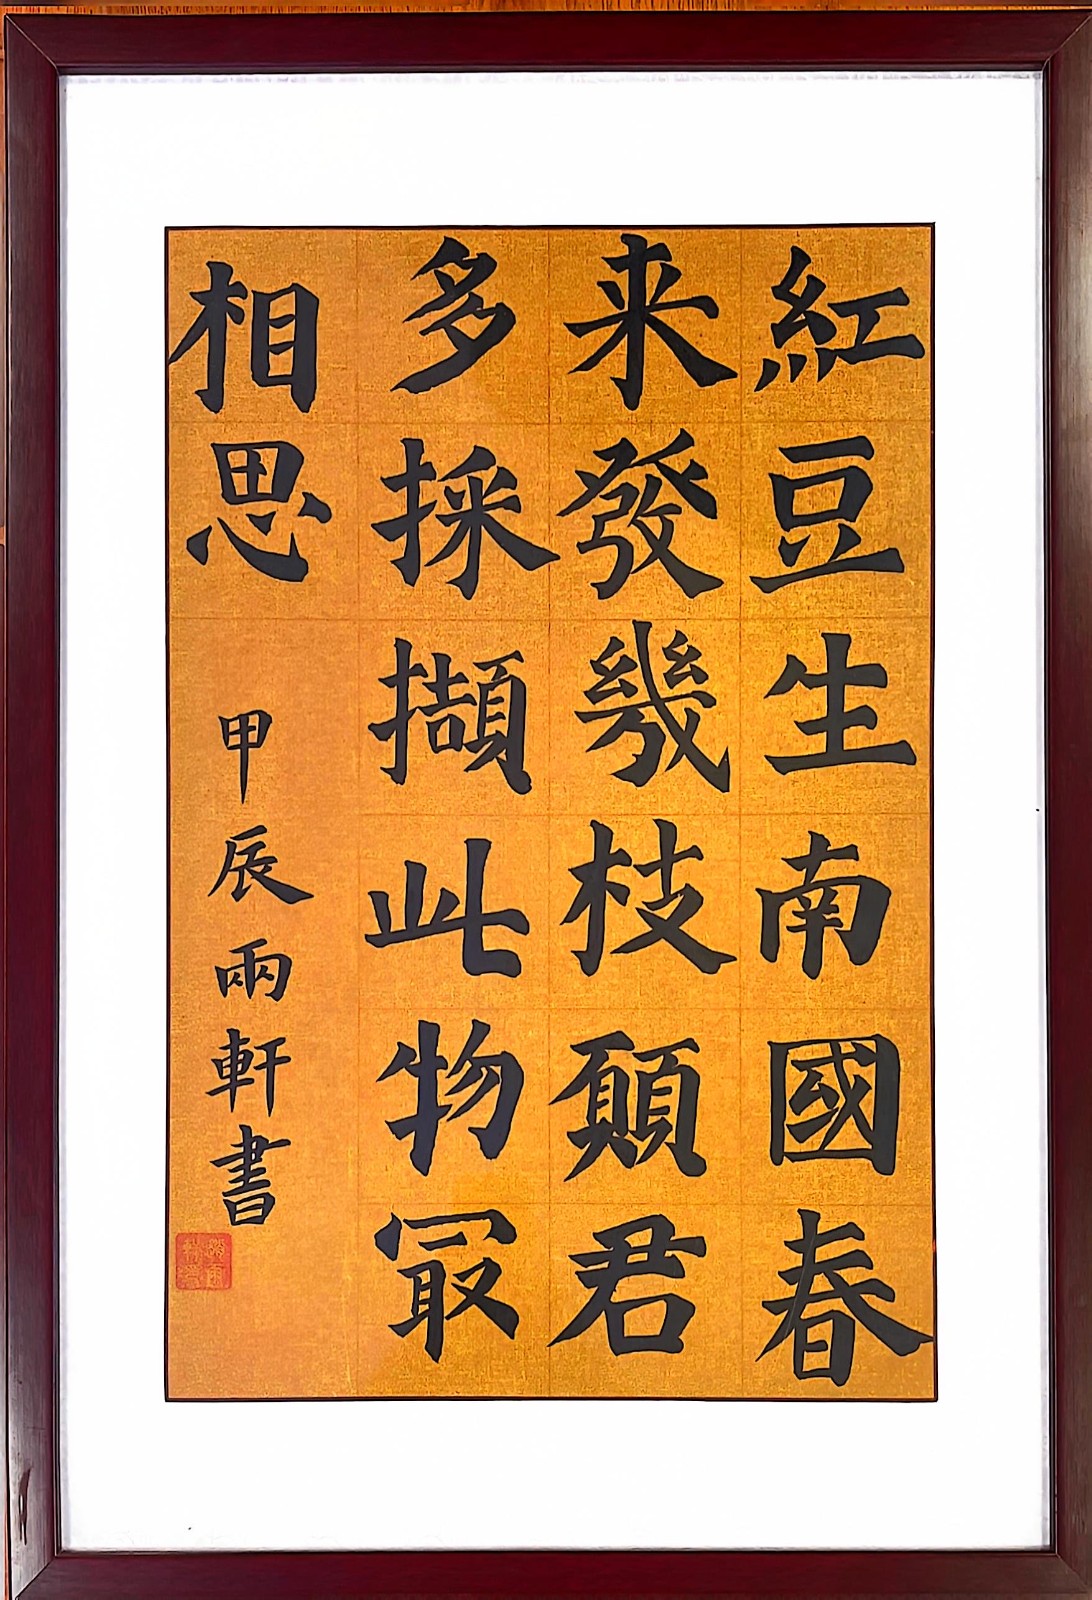 紅豆生南國春
来發幾枝願君
多採擷此物冣
相思
甲辰兩軒書